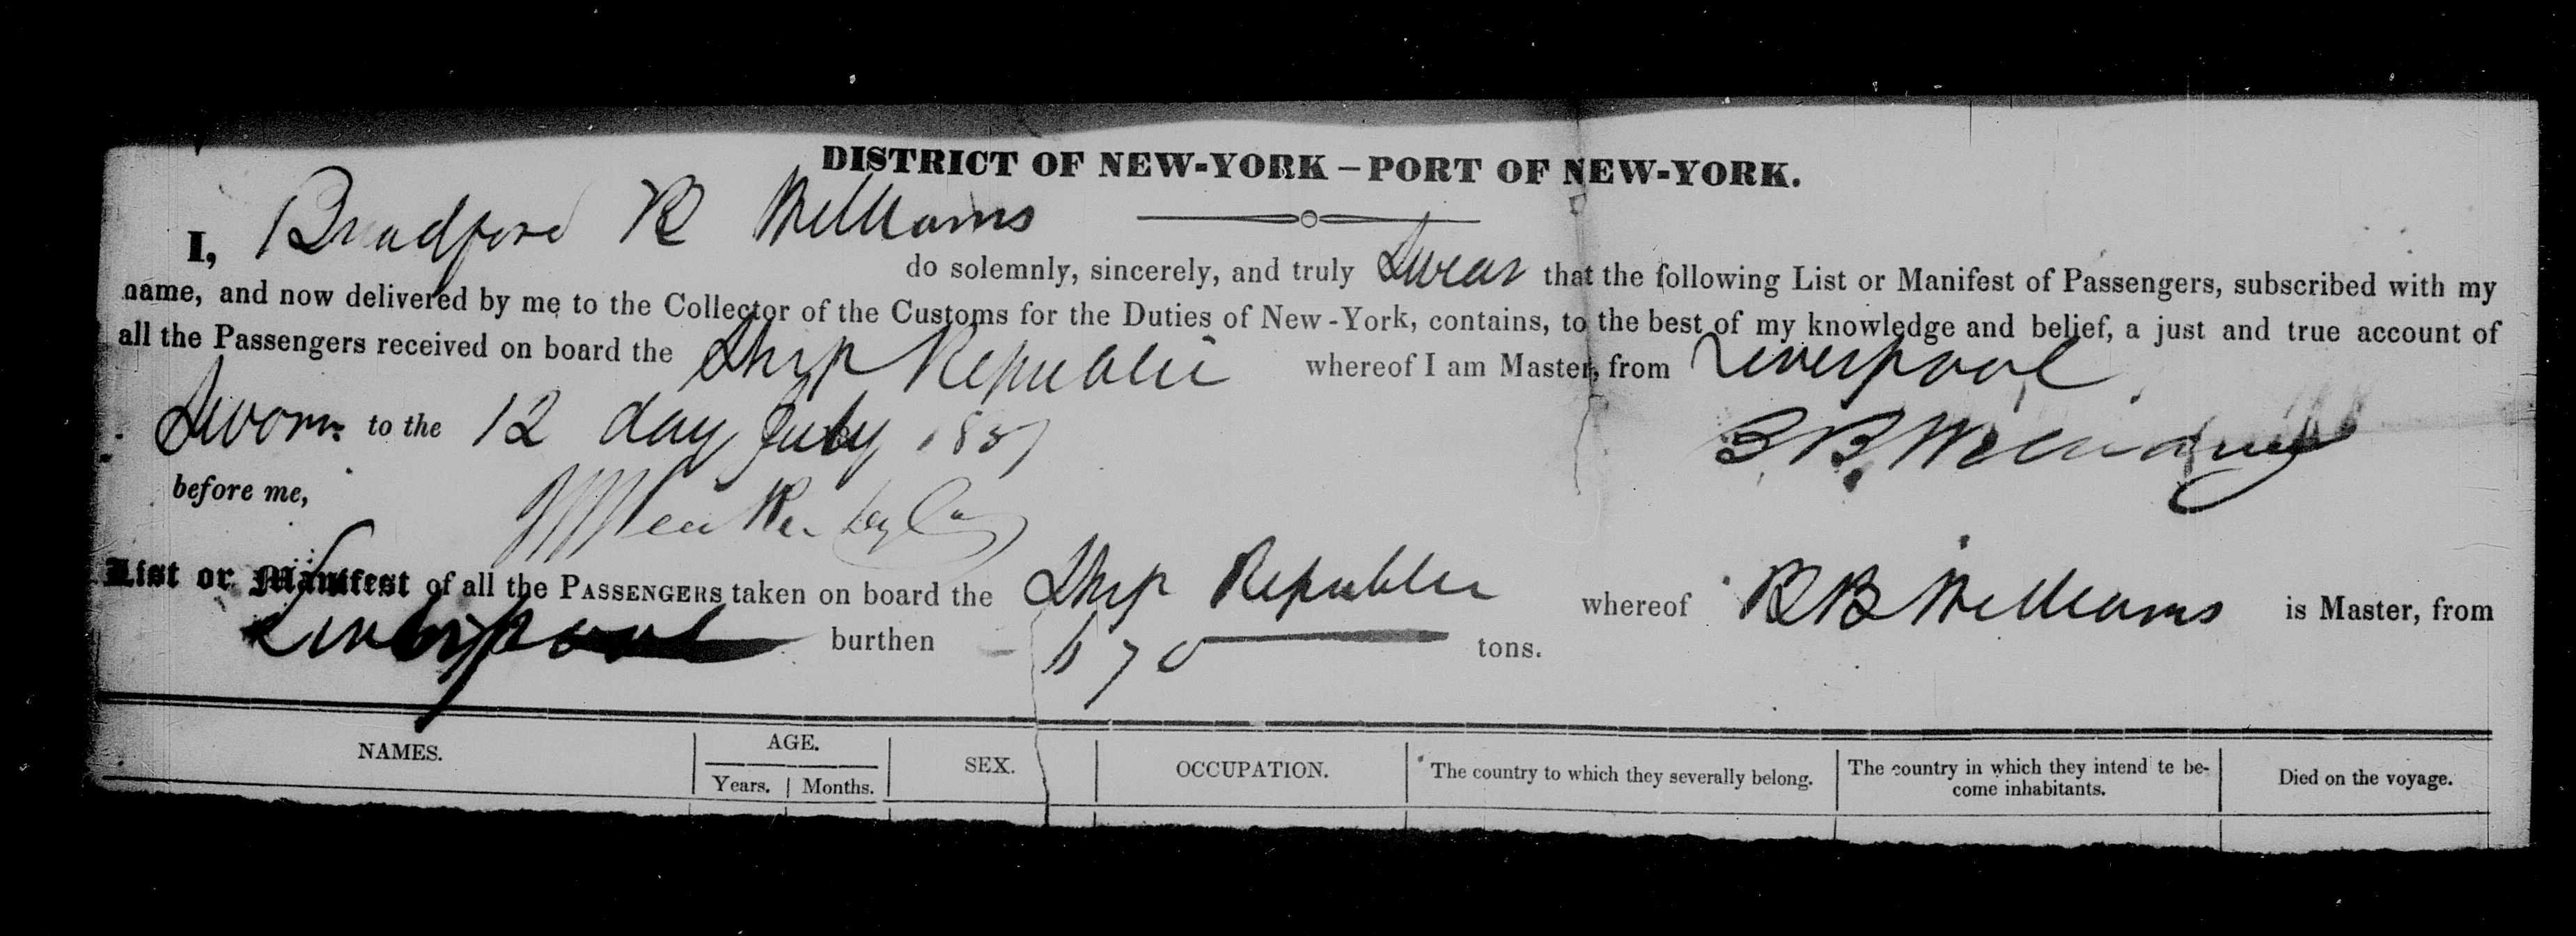 DISTRICT OF NEW-YORK – PORT OF NEW-YORK.
I, Bradford B Williams
do solemnly, sincerely, and truly Swear that the following List or Manifest of Passengers, subscribed with my
name, and now delivered by me to the Collector of the Customs for the Duties of New-York, contains, to the best of my knowledge and belief, a just and true account of
all the Passengers received on board the Ship Republic whereof I am Master, from Liverpool
Sworn to the 12 day July
B B Williams
before me,
List or Manifest of all the PASSENGERS taken on board the Ship Republic whereof B B Williams is Master, from
Liverpool burthen 670 tons.
NAMES. AGE. SEX. OCCUPATION. The country to which they severally belong. The country in which they intend te be-
come inhabitants. Died on the voyage.
Years. Months.